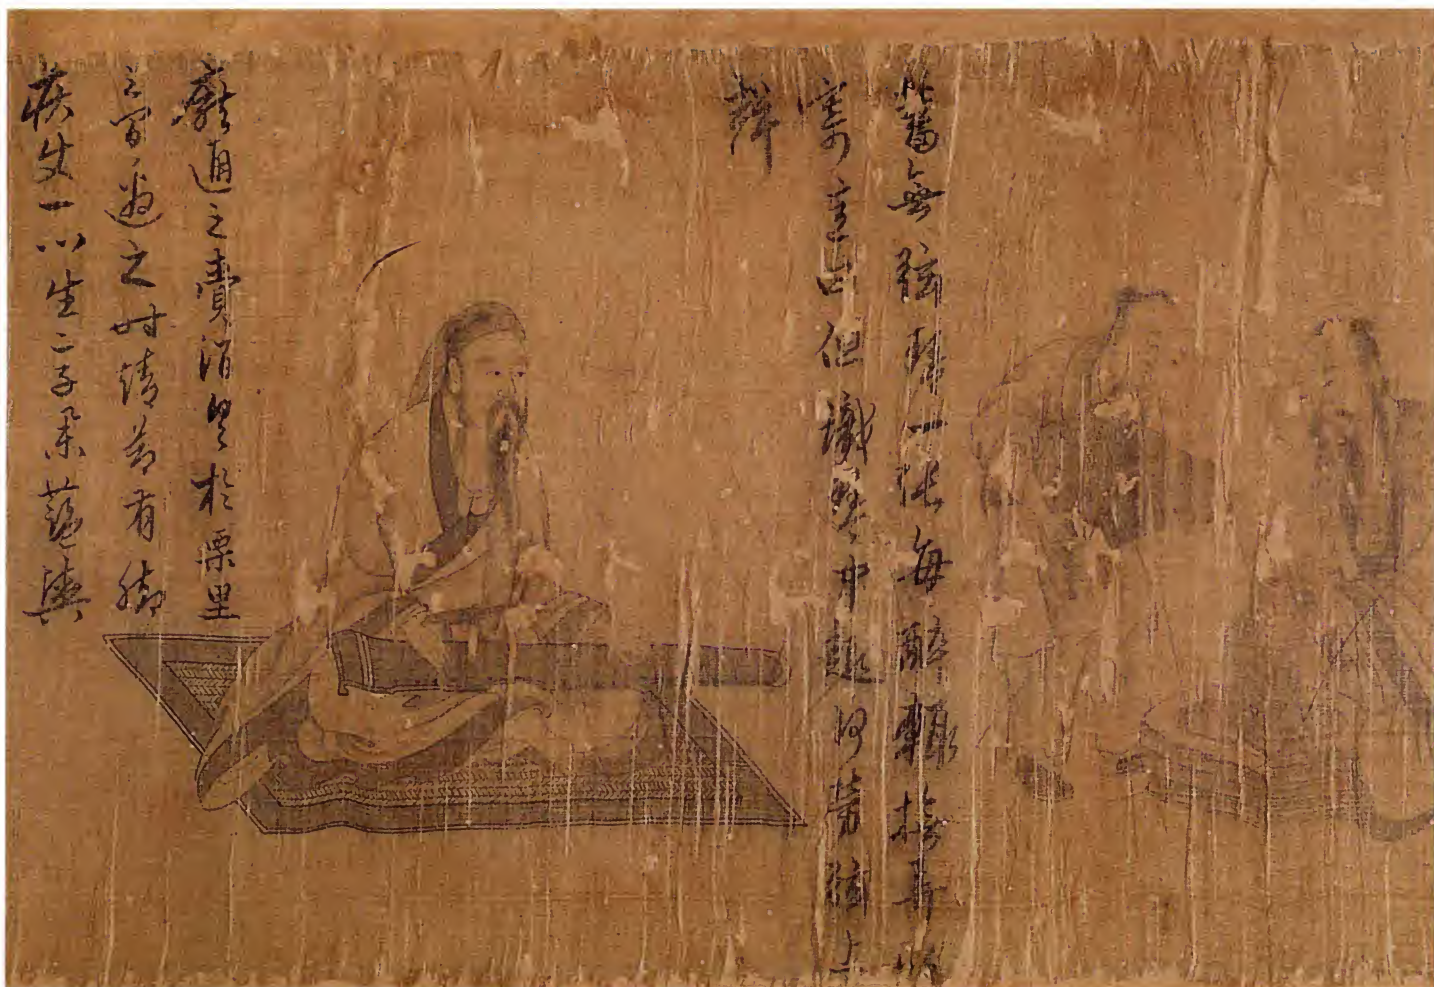 蓄無弦琴一張每醉輒撫弄以
寄意曰但識琴中趣何勞弦上
聲
龐通之賫酒具於栗里
之間邀之時靖節有脚
疾使一門生二子舁籃輿